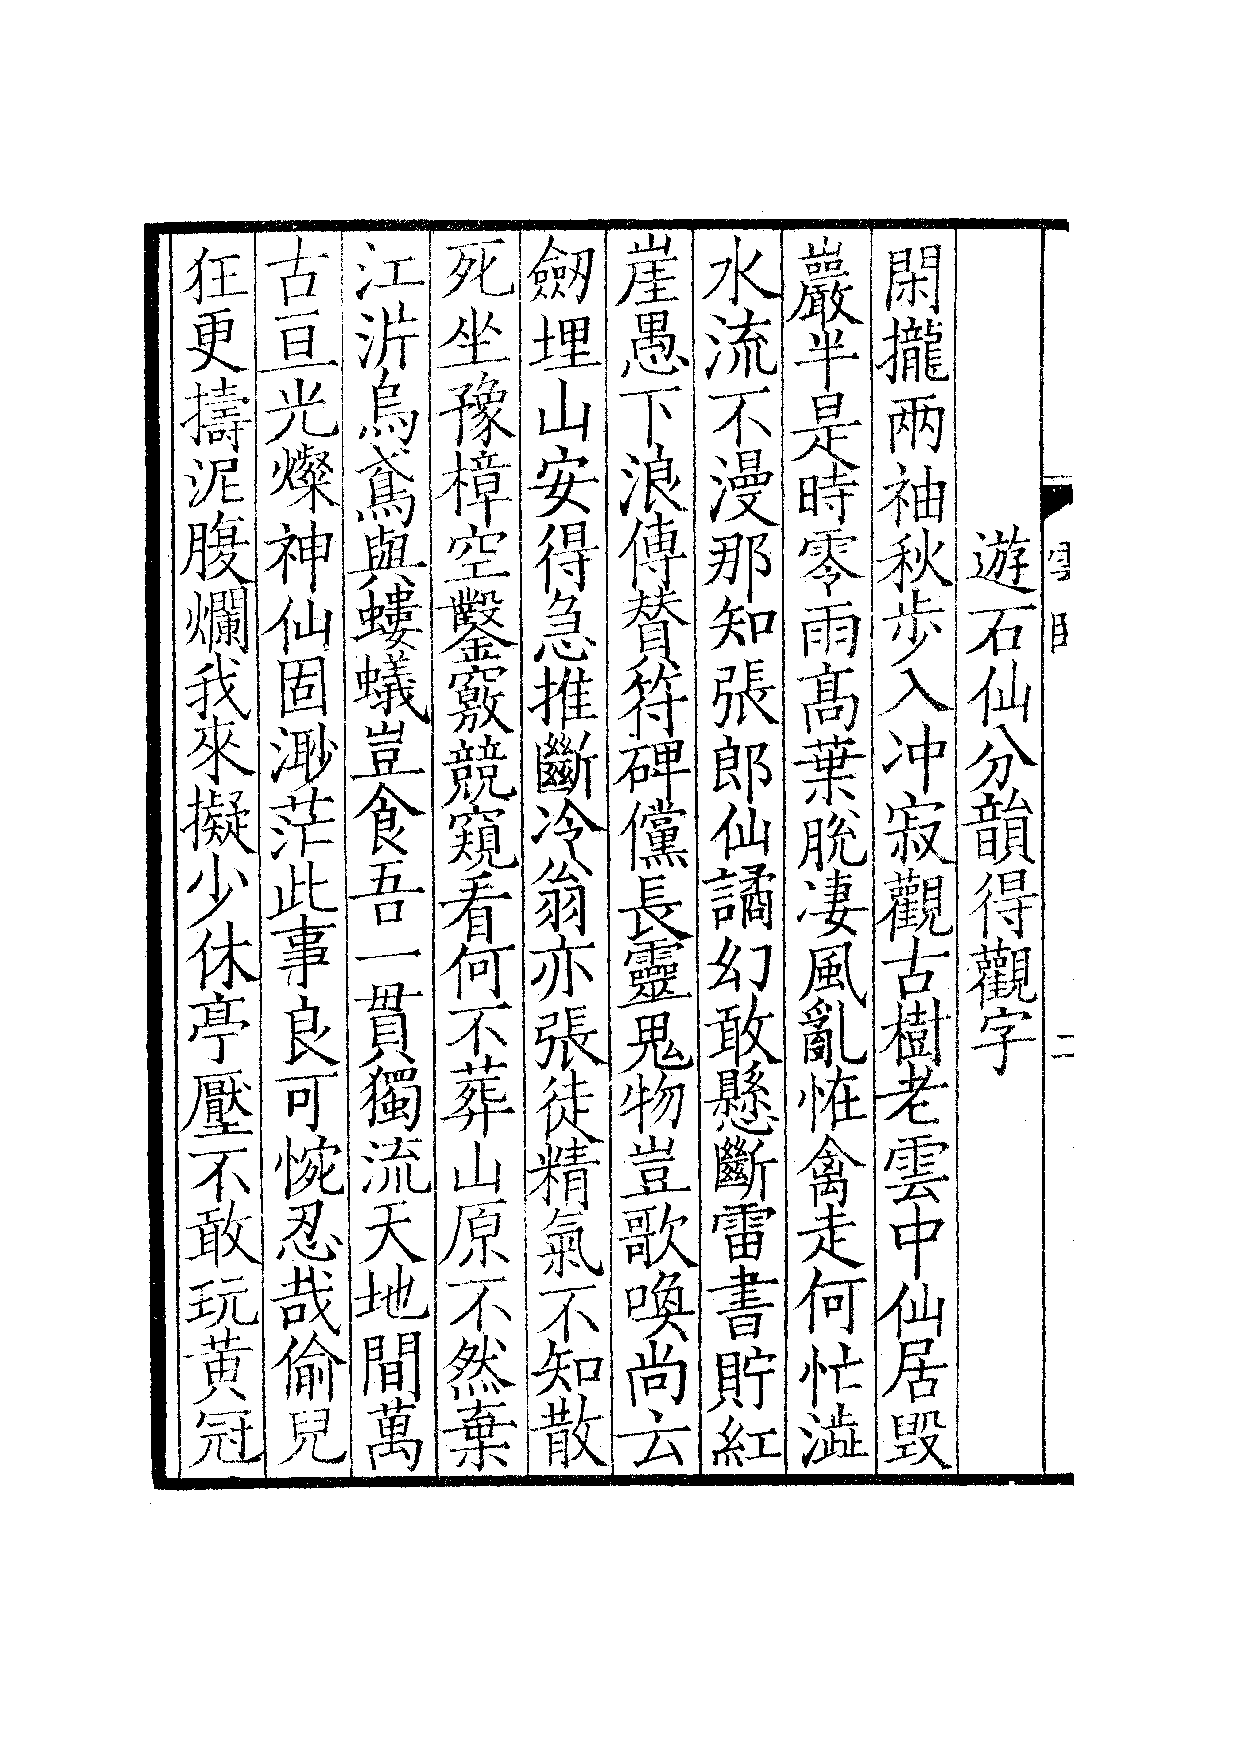 遊石仙分韻得觀字
閑攏兩袖秋步入冲寂觀古樹老雲中仙居毀
巖半是時零雨髙葉脫凄風亂恠禽走何忙澁
水流不漫那知張郎仙譎幻敢懸斷雷書貯紅
崖愚下浪傳賛符碑儻長靈鬼物豈歌喚尚云
劒埋山安得急推斷冷翁亦張徒精氣不知散
死坐豫樟空鑿竅競窺看何不葬山原不然棄
江泝烏鳶與螻蟻豈食吾一貫獨流天地間萬
古亘光燦神仙固渺茫此事良可惋忍哉偷兒
狂更擣泥腹爛我來擬少休亭壓不敢玩黃冠
二